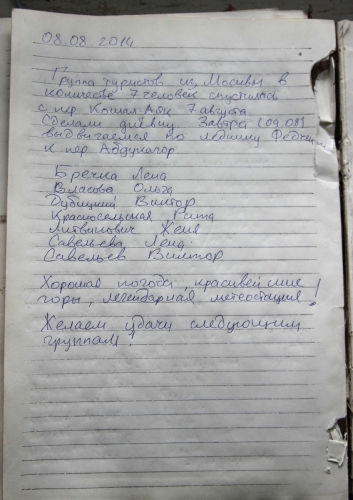 08.08 2014
Группа туристов из Москвы в
количестве 7 человек спустилась
с пер Кашал Аяк 7 августа
Сделали днёвку. Завтра (09.08)
выдвигаемся по леднику Федченко
к пер Абдукагор
Бречка Лена
Власова Ольга
Дубинин Виктор
Красносельская Рита
Литвинович Женя
Савельева Лена
Савельев Виктор
Хорошая погода, красивейшие
горы, легендарная метеостанция!
Желаем удачи следующим
группам!